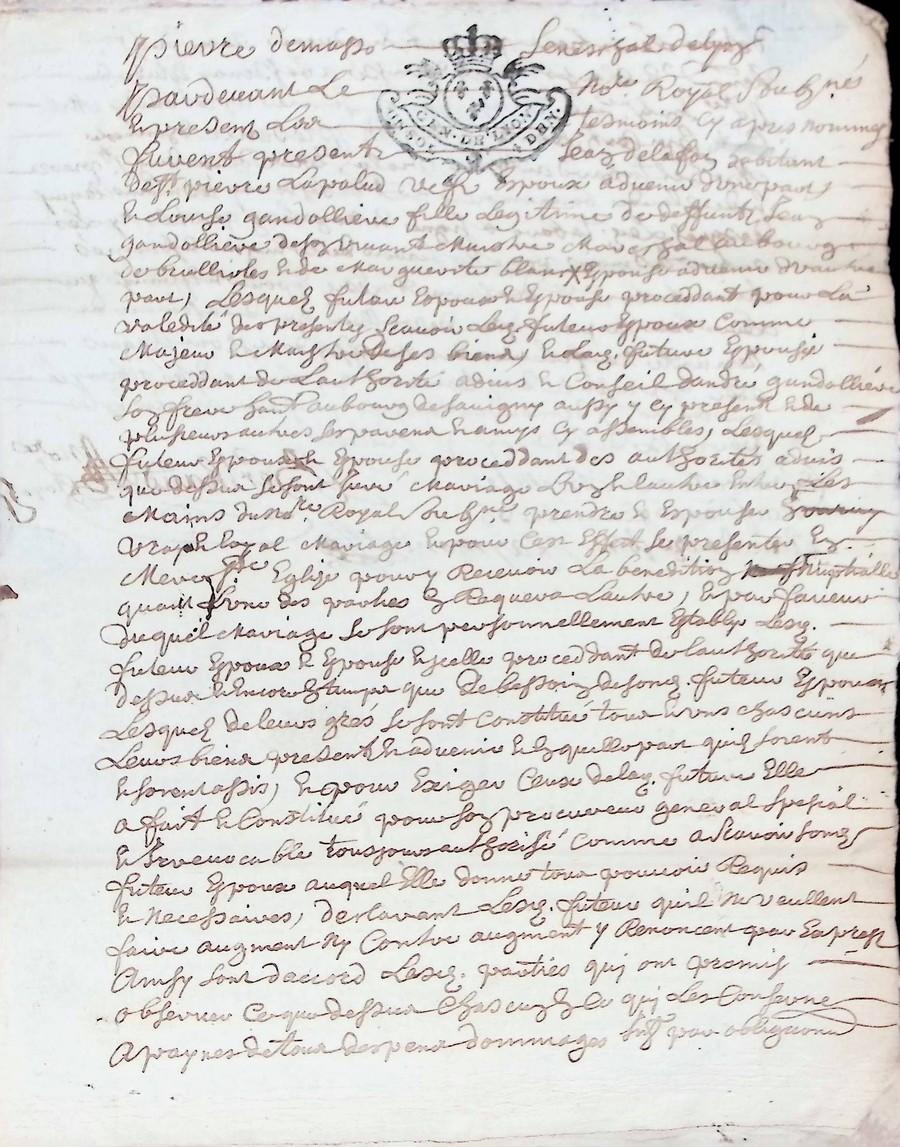 pierre demasso Seneschal de Lyon
Pardevant Le No.re Royal Soubz.né
Et present Lon tesmoins Cy apres nommes
furent present Jean delafay habitant
de St. pierre Lapalud Veuf Espoux advenir d'une part,
Et Louise gandolliere fille Legitime de deffunt Jean
gandolliere de son vivant Maistre Mareschal au bourg
de brullioles Et de Marguerite blanc Espouse advenir d'autre
part, Lesquels futeur Espoux Et Espouse proceddant pour La
validité des presentes Scavoir Led. futeur Espoux Comme
Majeur Et Maistre De ses biens, Et Lad. future Espouse
proceddant de L'authorité advis Et Conseil d'andré gandolliere
Son frere habt. au bourg de Savigny aussy y Cy present Et de
plusieurs autres Ses parens Et amys Cy assembles, Lesquels
futeur Espoux Et Espouse proceddant des authorités advis
que dessus Se sont Mariage L'un Et L'autre Entre Les
Mains du No.re Royal Soubz.né prendre Et Espouser
vray Et Loyal Mariage Et pour Cest Effect Se presenter En
Mere Ste Eglise pour y Recevoir La benediction Nuptialle
quant L'une des parties En Requera L'autre, Et par faveur
duquel Mariage Se sont personnellement Establys Lesd.
futeur Espoux Et Espouse Icelle proceddant de L'authorité que
dessus Et Encore En tampt que De bessoin de Sond. futeur Espoux
Lesquels de Leurs grés Se sont Constitué tous Et uns chascuns
Leurs biens present Et advenir En quelle part qu'ils Soient
Et Soront assis, Et pour Exiger Ceux de Lad. future Elle
a fait Et Constitué pour Son procureur general Spesial
Et Irrevocable tousjours authorisé Comme a Scavoir Sond.
futeur Espoux auquel Elle donne tous pouvoir Requis
Et Necessaires, declarant Lesd. futeur qu'il Ne veullent
faire augment Ny Contre augment y Renoncent par Expres
Ainsy sont d'accord Lesd. parties quj ont promis
observer Ce que dessus Chascun En Ce quj Les Conserne
A paynes de tous despens dommages par obligations